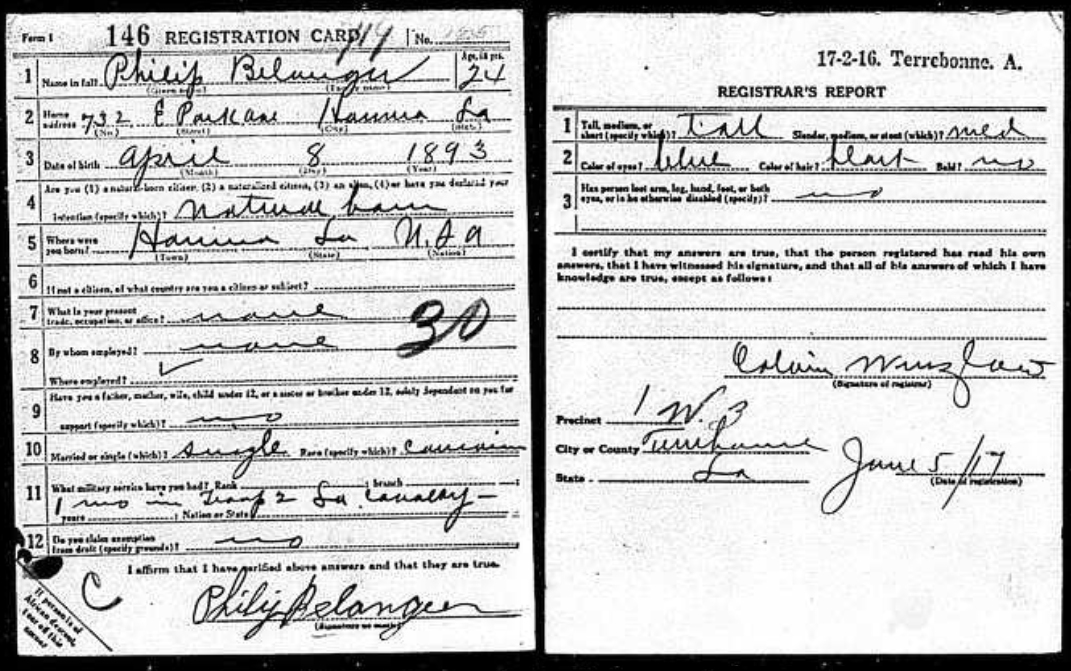 Form 1 146 REGISTRATION CARD 44 No.
1 Name in full Philip Belanger Age, in yrs. 24
(Given name) (Family name)
2 Home address 732 E Park ave Houma La
(No.) (Street) (City) (State)
3 Date of birth April 8 1893
(Month) (Day) (Year)
Are you (1) a natural-born citizen, (2) a naturalized citizen, (3) an alien, (4) or have you declared your
4 intention (specify which)? Natural born
5 Where were you born? Houma La U.S.A
(Town) (State) (Nation)
6 If not a citizen, of what country are you a citizen or subject?
7 What is your present trade, occupation, or office? none 30
8 By whom employed? none
Where employed?
9 Have you a father, mother, wife, child under 12, or a sister or brother under 12, solely dependent on you for
support (specify which)? no
10 Married or single (which)? Single Race (specify which)? Caucasian
11 What military service have you had? Rank ; branch ;
1 mo in Troop 2 La Cavalry
years ; Nation or State
12 Do you claim exemption from draft (specify grounds)? no
I affirm that I have verified above answers and that they are true.
C
Philip Belanger
(Signature or mark)
If person is of
African descent,
tear off this
corner
17-2-16. Terrebonne. A.
REGISTRAR'S REPORT
1 Tall, medium, or short (specify which)? Tall Slender, medium, or stout (which)? med
2 Color of eyes? blue Color of hair? black Bald? no
3 Has person lost arm, leg, hand, foot, or both
eyes, or is he otherwise disabled (specify)? no
I certify that my answers are true, that the person registered has read his own
answers, that I have witnessed his signature, and that all of his answers of which I have
knowledge are true, except as follows:
(Signature of registrar)
Precinct 1 W. 3
City or County Terrebonne
State La June 5/17
(Date of registration)